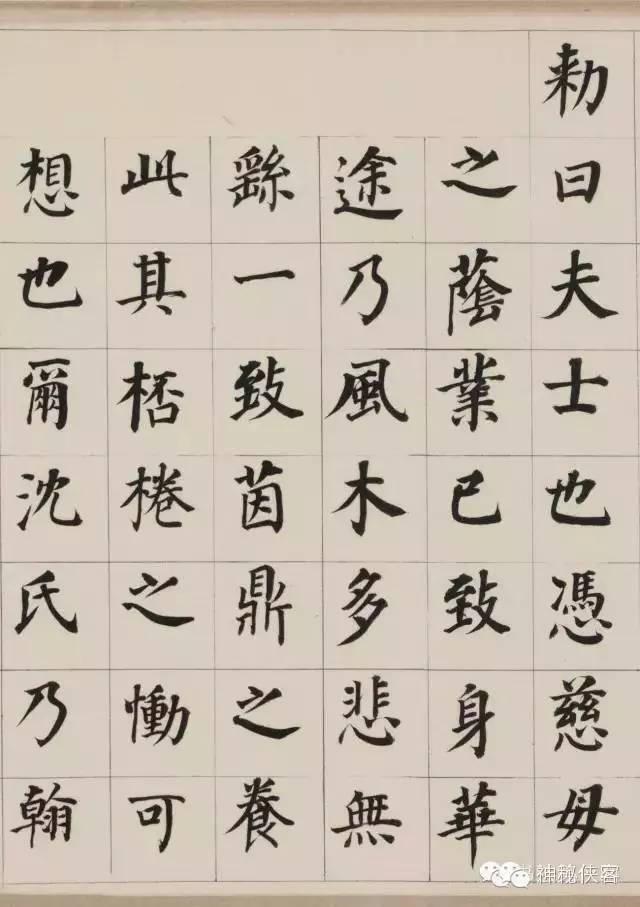 勑曰夫士也憑慈母
之蔭業已致身華
途乃風木多悲無
繇一致茵鼎之養
此其桮棬之慟可
想也爾沈氏乃翰
神秘侠客